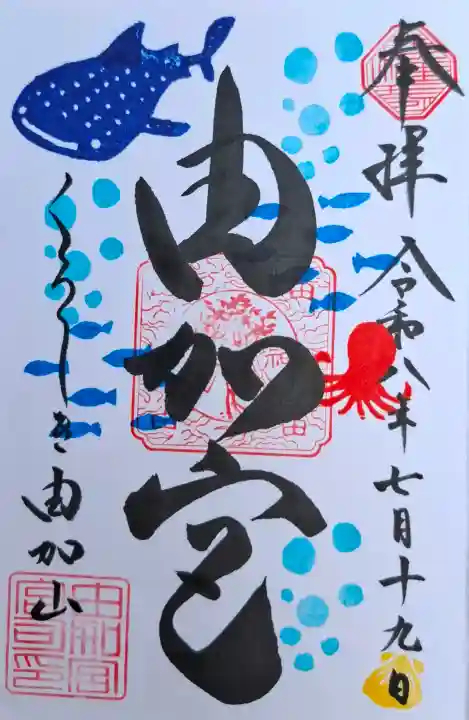 奉拝
令和八年七月十九日
由加宮
くらしき由加山
由加宮司印